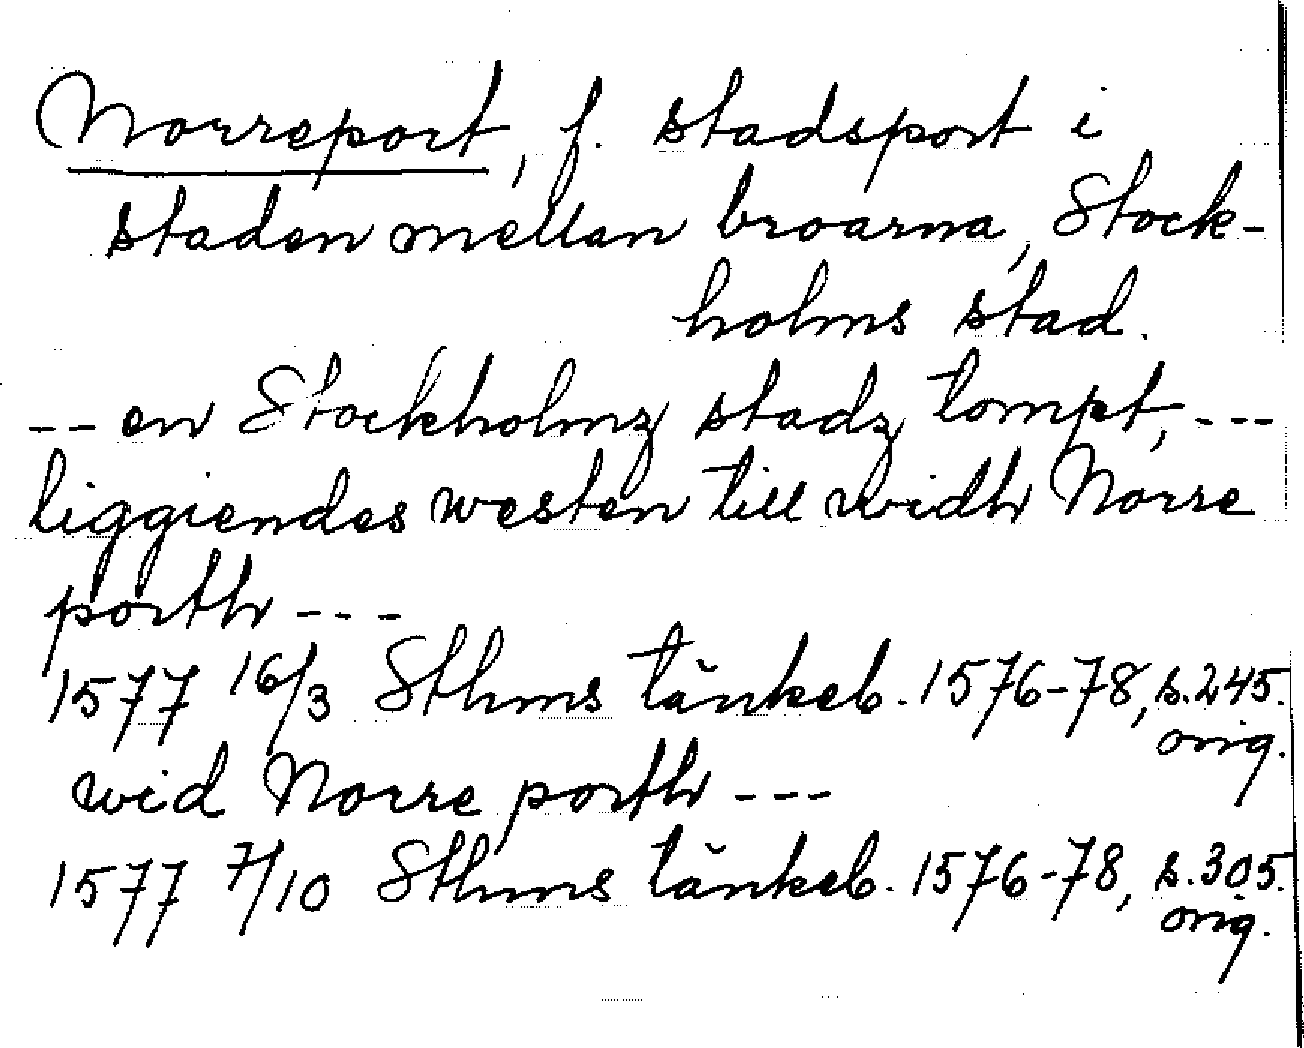 Norreport, f. stadsport i
staden mellan broarna, Stock-
holms stad.
-- en Stockholmz stadz tompt, ---
liggiendes westen till widh Norre
porth ---
1577 16/3 Sthms tänkeb. 1576-78, s. 245.
orig.
wid Norre porth ---
1577 7/10 Sthms tänkeb. 1576-78, s. 305.
orig.